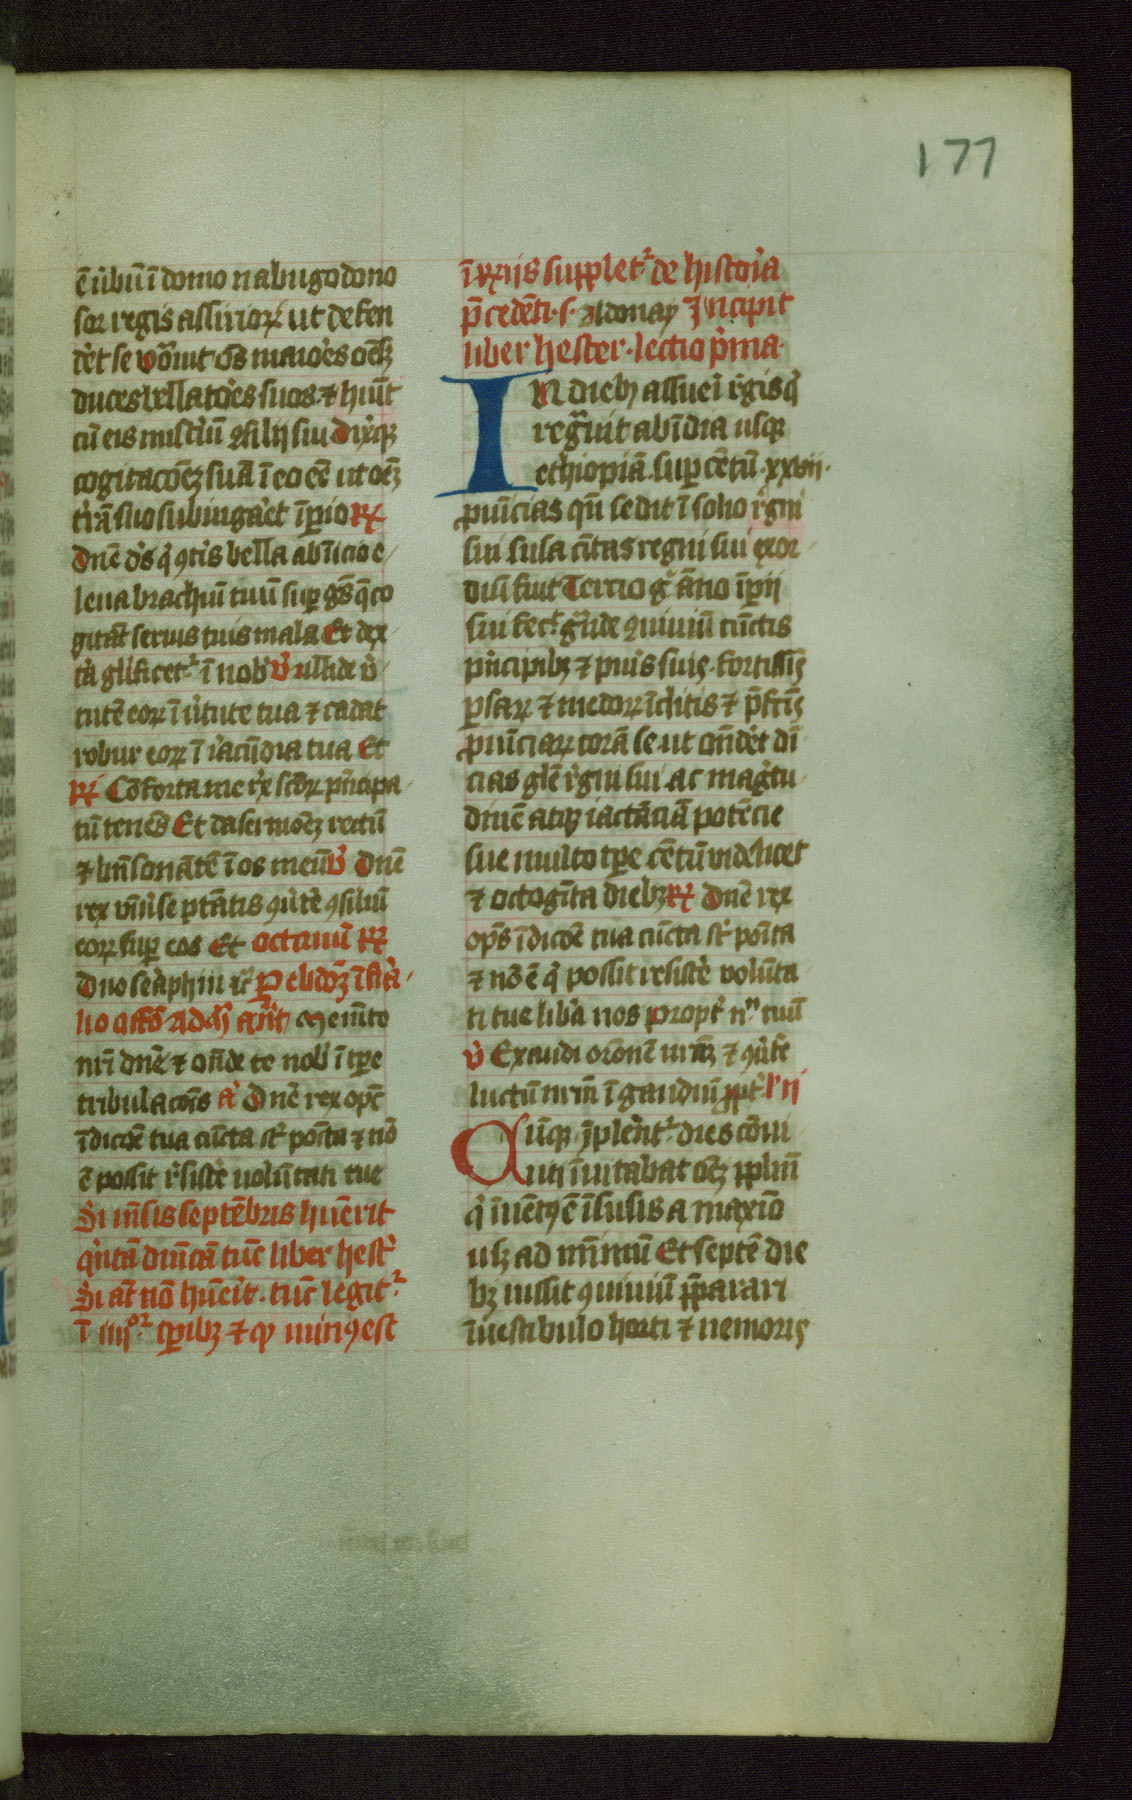 177
ē ūbū ī domo nabugodono
sor regis assirioꝝ ut defen
d'et se vōuit oēs maiores oēsqꝫ
duces bellatoēs suos ⁊ hūit
cū eis mist'iū ꝯsilij sui dixqꝫ
cogitacōeꝫ suā ī eo eē ut oēꝫ
t'rā suo subiugaēt īperio ℟
Dnē ds q' ꝯt'is bella ab īicio e
leua brachiū tuū sup gētēs q co
gitāt seruis tuis mala Et dex
t'a gl'ificet' ī nob' V' allide v'
tutē eoꝝ ī v'tute tua ⁊ cadat
robur eoꝝ ī iracūdia tua Et
℟ Cōforta me rex scōꝝ p'ncipa
tū tenēs Et da sermōeꝫ rectū
⁊ bn̄sonātē ī os meū V' Dnē
rex vniu'se ptātis ꝯu'te ꝯsiliū
eoꝝ sup eos Et octauū ℟
Duo seraphin ꝛc' P ebdōꝫ ī fria
lio offō Ad ant' Memēto
nr̄i dnē ⁊ ōnde te nob' ī tpe
tribulacōis a' Dnē rex opc̄
īdicōe tua cūcta st' pōita ⁊ nō
ē possit r'sist'e uolūtati tue
Si mēsis septēbris hūerit
q'ntā dn̄icā tūc liber hest'
Si āt nō hūe'it. tūc legit'
ī iiijor tp̄ibꝫ ⁊ qꝫ minꝰ est
ī ℟ijs supplet' de historia
p̄cedēti .s. Adonay Jncipit
liber hester. lectio p'ma.
In diebꝫ assueri r'gis q'
regūit ab īdia usqꝫ
ethiopiā sup cētū xxvii.
puīcias qn̄ sedit ī solio r'gni
sui susa ciitas regni sui exor
diū fuit Tercio g' āno īperii
sui fec' g'nde ꝯuiuiū cūctis
p'ncipibꝫ ⁊ pu'is suis. fortissīs
psaꝝ ⁊ medoꝝ īclitis ⁊ p̄fctīs
puīciaꝝ corā se. ut ōnd'et di
cias gl'e r'gni sui. ac mag'tu
dinē atqꝫ iactāciā potēcie
sue multo tpe cētū videlicet
⁊ octogīta diebꝫ ℟ Dnē rex
op̄s īdicōe tua cūcta st' pōita
⁊ nō ē q' possit resist'e volūta
ti tue lib'a nos propt' nn tuū
V' Exaudi orōnē nrāꝫ ⁊ ꝯu'te
luctū nrm̄ ī gaudiū ppt' l' ii
Cūqꝫ īplerēt' dies cōui
uij īuitabat oēꝫ ppl'm
q' īuētꝰ ē ī susis a maxīo
usqꝫ ad mīmū Et septē die
bꝫ iussit ꝯuiuiū pparari
ī uestibulo horti ⁊ nemoris